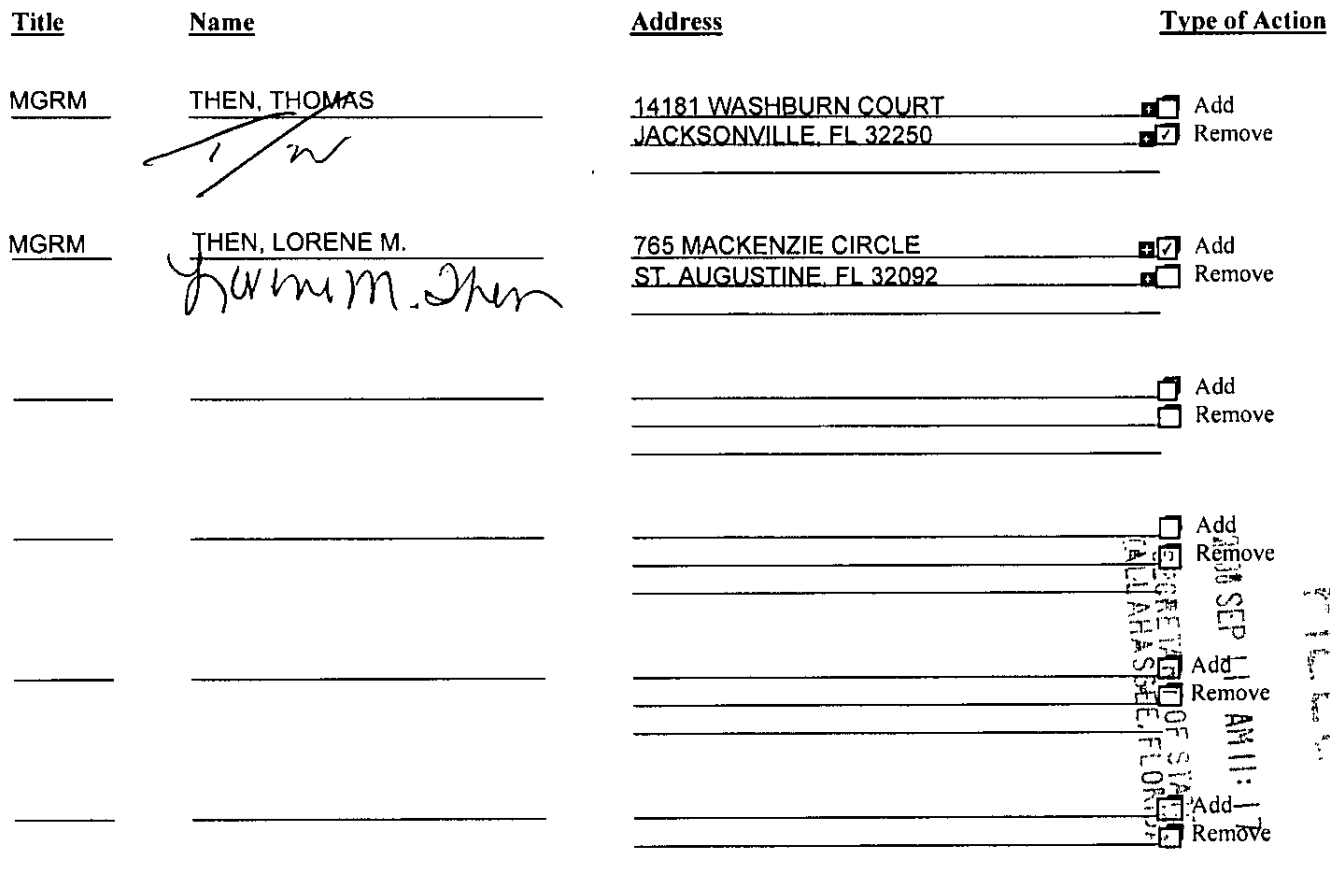 Title Name Address Type of Action
MGRM THEN, THOMAS 14181 WASHBURN COURT Add
JACKSONVILLE, FL 32250 Remove
MGRM THEN, LORENE M. 765 MACKENZIE CIRCLE Add
Lorene M. Then ST. AUGUSTINE, FL 32092 Remove
Add
Remove
Add
Remove
Add
Remove
Add
Remove
SEP 11 AM 11: 17
SECRETARY OF STATE
TALLAHASSEE, FLORIDA